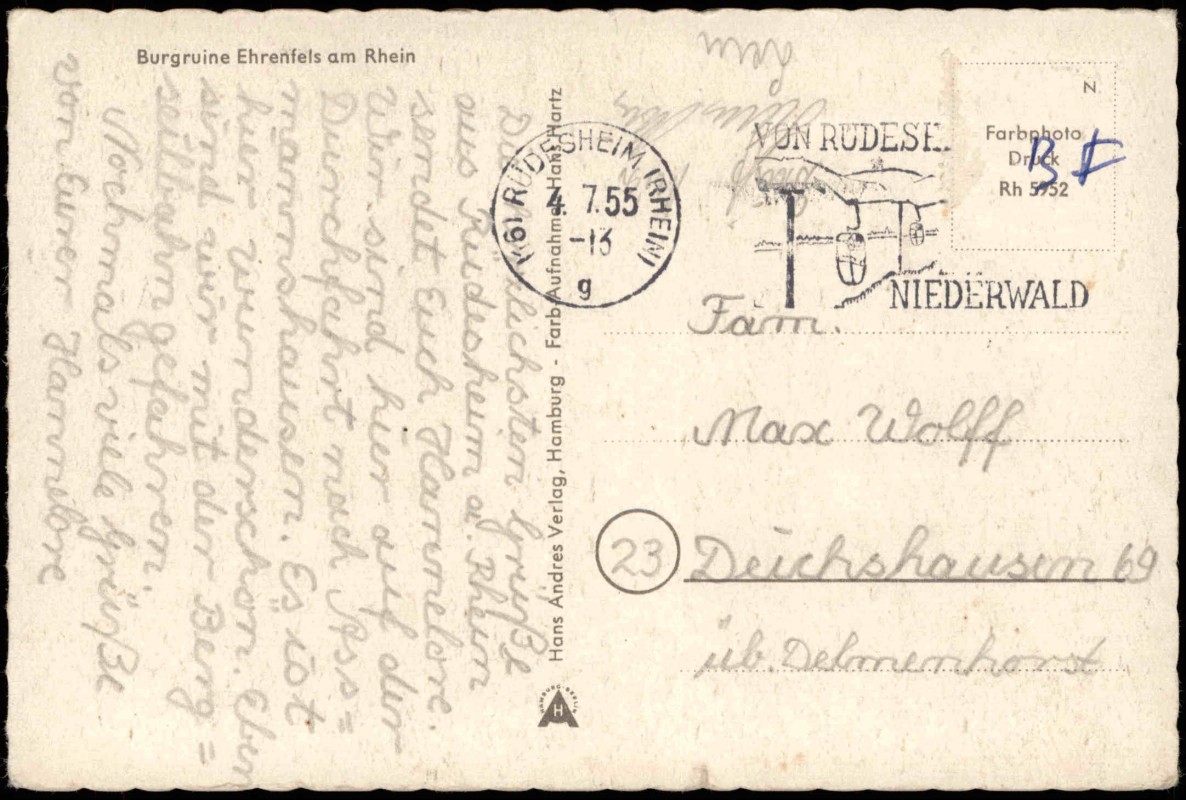 Burgruine Ehrenfels am Rhein
Die herzlichsten Grüße
aus Rüdesheim a. Rhein
sendet Euch Hannelore.
Wir sind hier auf der
Durchfahrt nach Ass=
mannshausen. Es ist
hier wunderschön. Eben
sind wir mit der Berg=
seilbahn gefahren.
Nochmals viele Grüße
von Eurer Hannelore
Hans Andres Verlag, Hamburg - Farb-Aufnahme: Hans Hartz
HAMBURG-BERLIN
H
(16) RÜDESHEIM (RHEIN)
4. 7.55
-13
g
VON RÜDESH
NIEDERWALD
N
Farbphoto
Druck
Rh 5952
Fam.
Max Wolff
23 Deichshausen 69
üb. Delmenhorst